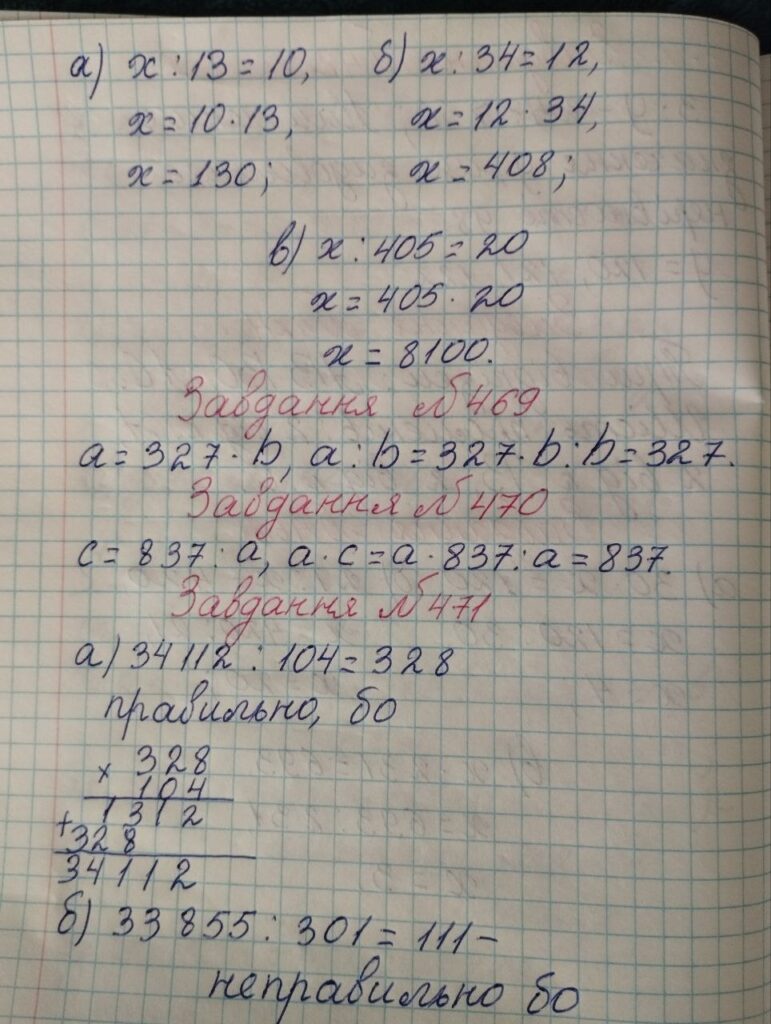 а) x : 13 = 10, б) x : 34 = 12,
x = 10 · 13, x = 12 · 34,
x = 130; x = 408;
в) x : 405 = 20
x = 405 · 20
x = 8100.
Завдання №469
a = 327 · b, a : b = 327 · b : b = 327.
Завдання №470
c = 837 : a, a · c = a · 837 : a = 837.
Завдання №471
а) 34112 : 104 = 328
правильно, бо
x 328
104
1312
+ 328
34112
б) 33855 : 301 = 111 –
неправильно бо